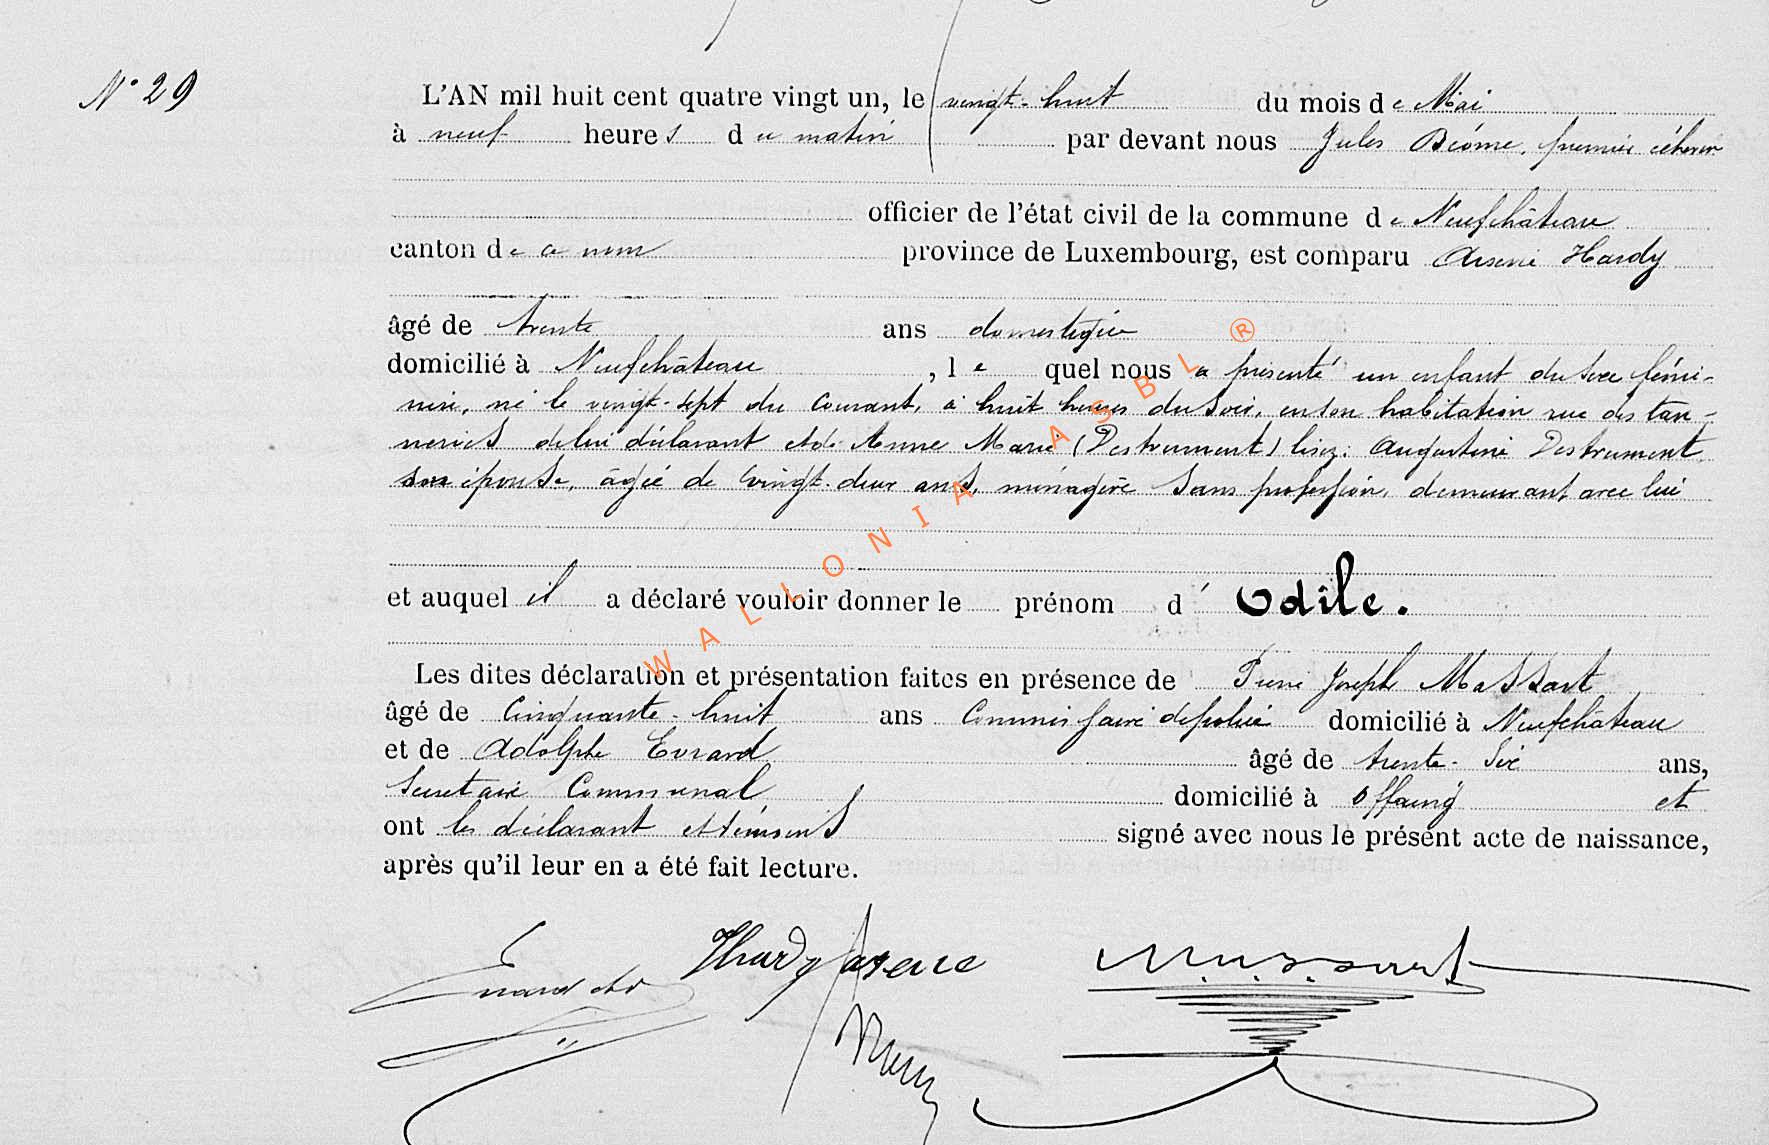 N° 29
L'AN mil huit cent quatre vingt un, le vingt-huit du mois de Mai
à neuf heures du matin par devant nous Jules premier échevin
officier de l'état civil de la commune de Neufchâteau
canton de ce nom province de Luxembourg, est comparu Arsène Hardy
âgé de trente ans domestique
domicilié à Neufchâteau, le quel nous a présenté un enfant du sexe fémi-
nin, né le vingt-sept du courant, à huit heures du soir, en son habitation rue des tan-
neries de lui déclarant et de Anne Marie (Destrument) lisez: Augustine Destrument,
son épouse, âgée de vingt-deux ans, ménagère sans profession, demeurant avec lui
et auquel il a déclaré vouloir donner le prénom d'Odile.
Les dites déclaration et présentation faites en présence de Pierre Joseph Massart
âgé de Cinquante-huit ans Commissaire de police domicilié à Neufchâteau
et de Adolphe Evrard, âgé de trente-six ans,
Secrétaire Communal, domicilié à Offaing et
ont les déclarant et témoins signé avec nous le présent acte de naissance,
après qu'il leur en a été fait lecture.
Evrard Ad Hardy Arsene Massart
WALLONIA ASBL ®